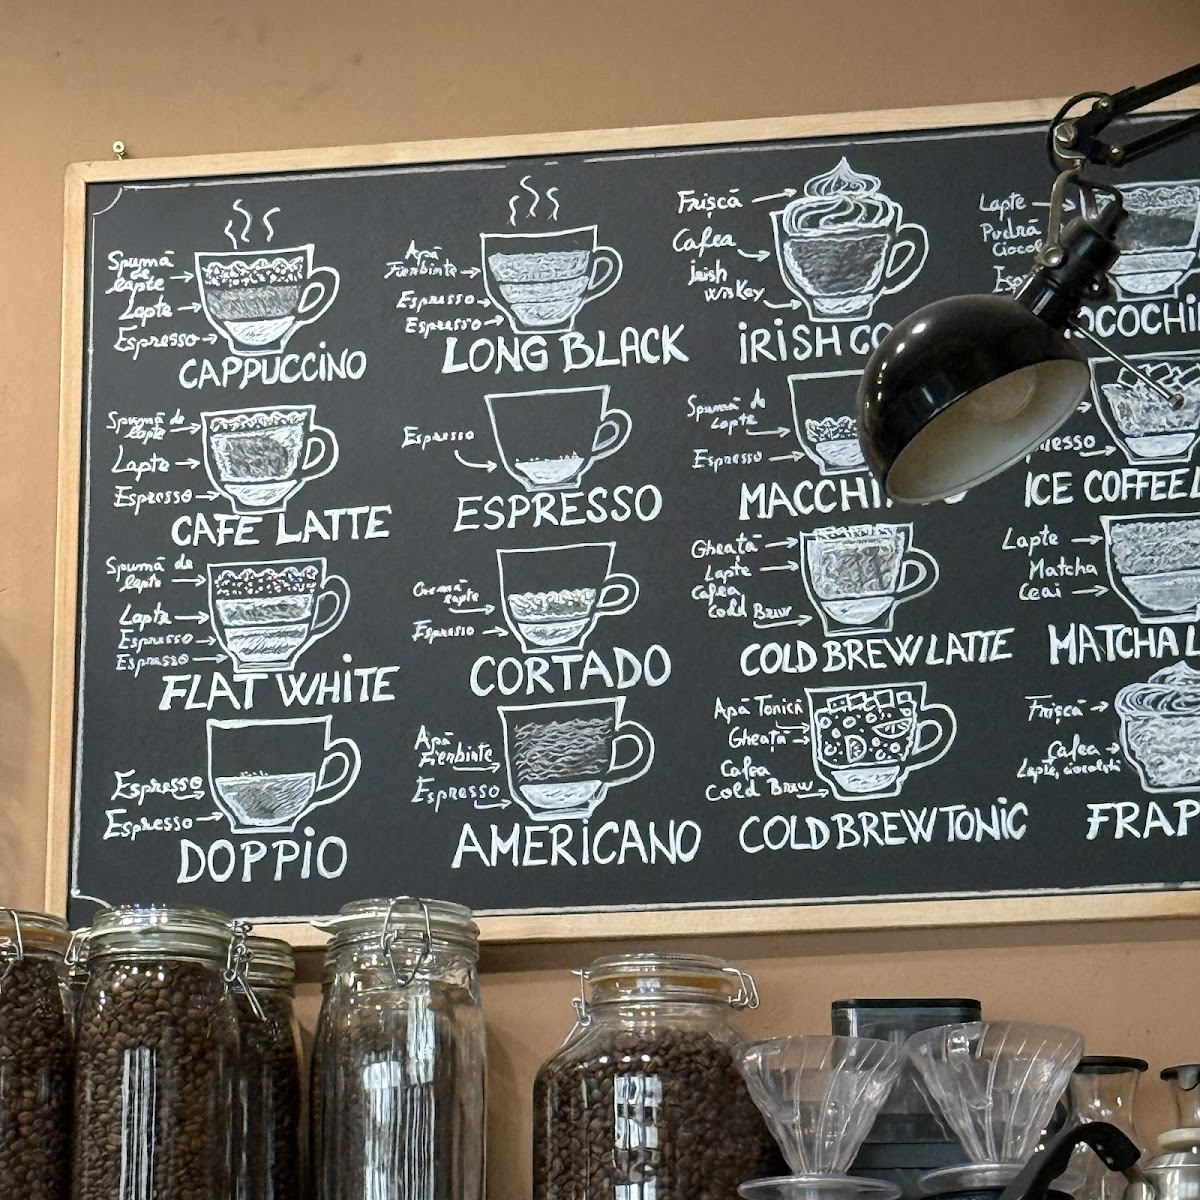 Spumă
de
lapte
Lapte
Espresso
CAPPUCCINO
Apă
Fierbinte
Espresso
Espresso
LONG BLACK
Frișcă
Cafea
Irish
Wiskey
IRISH CO
Lapte
Pudră
Espresso
Spumă de
lapte
Lapte
Espresso
CAFE LATTE
Espresso
ESPRESSO
Spumă de
lapte
Espresso
MACCHI
ICE COFFEE L
Spumă de
lapte
Lapte
Espresso
Espresso
FLAT WHITE
Cremă
lapte
Espresso
CORTADO
Gheață
Lapte
Cafea
Cold Brew
COLD BREW LATTE
Lapte
Matcha
Ceai
MATCHA L
Espresso
Espresso
DOPPIO
Apă
Fierbinte
Espresso
AMERICANO
Apă Tonică
Gheață
Cafea
Cold Brew
COLD BREW TONIC
Frișcă
Cafea
Lapte,
FRAP